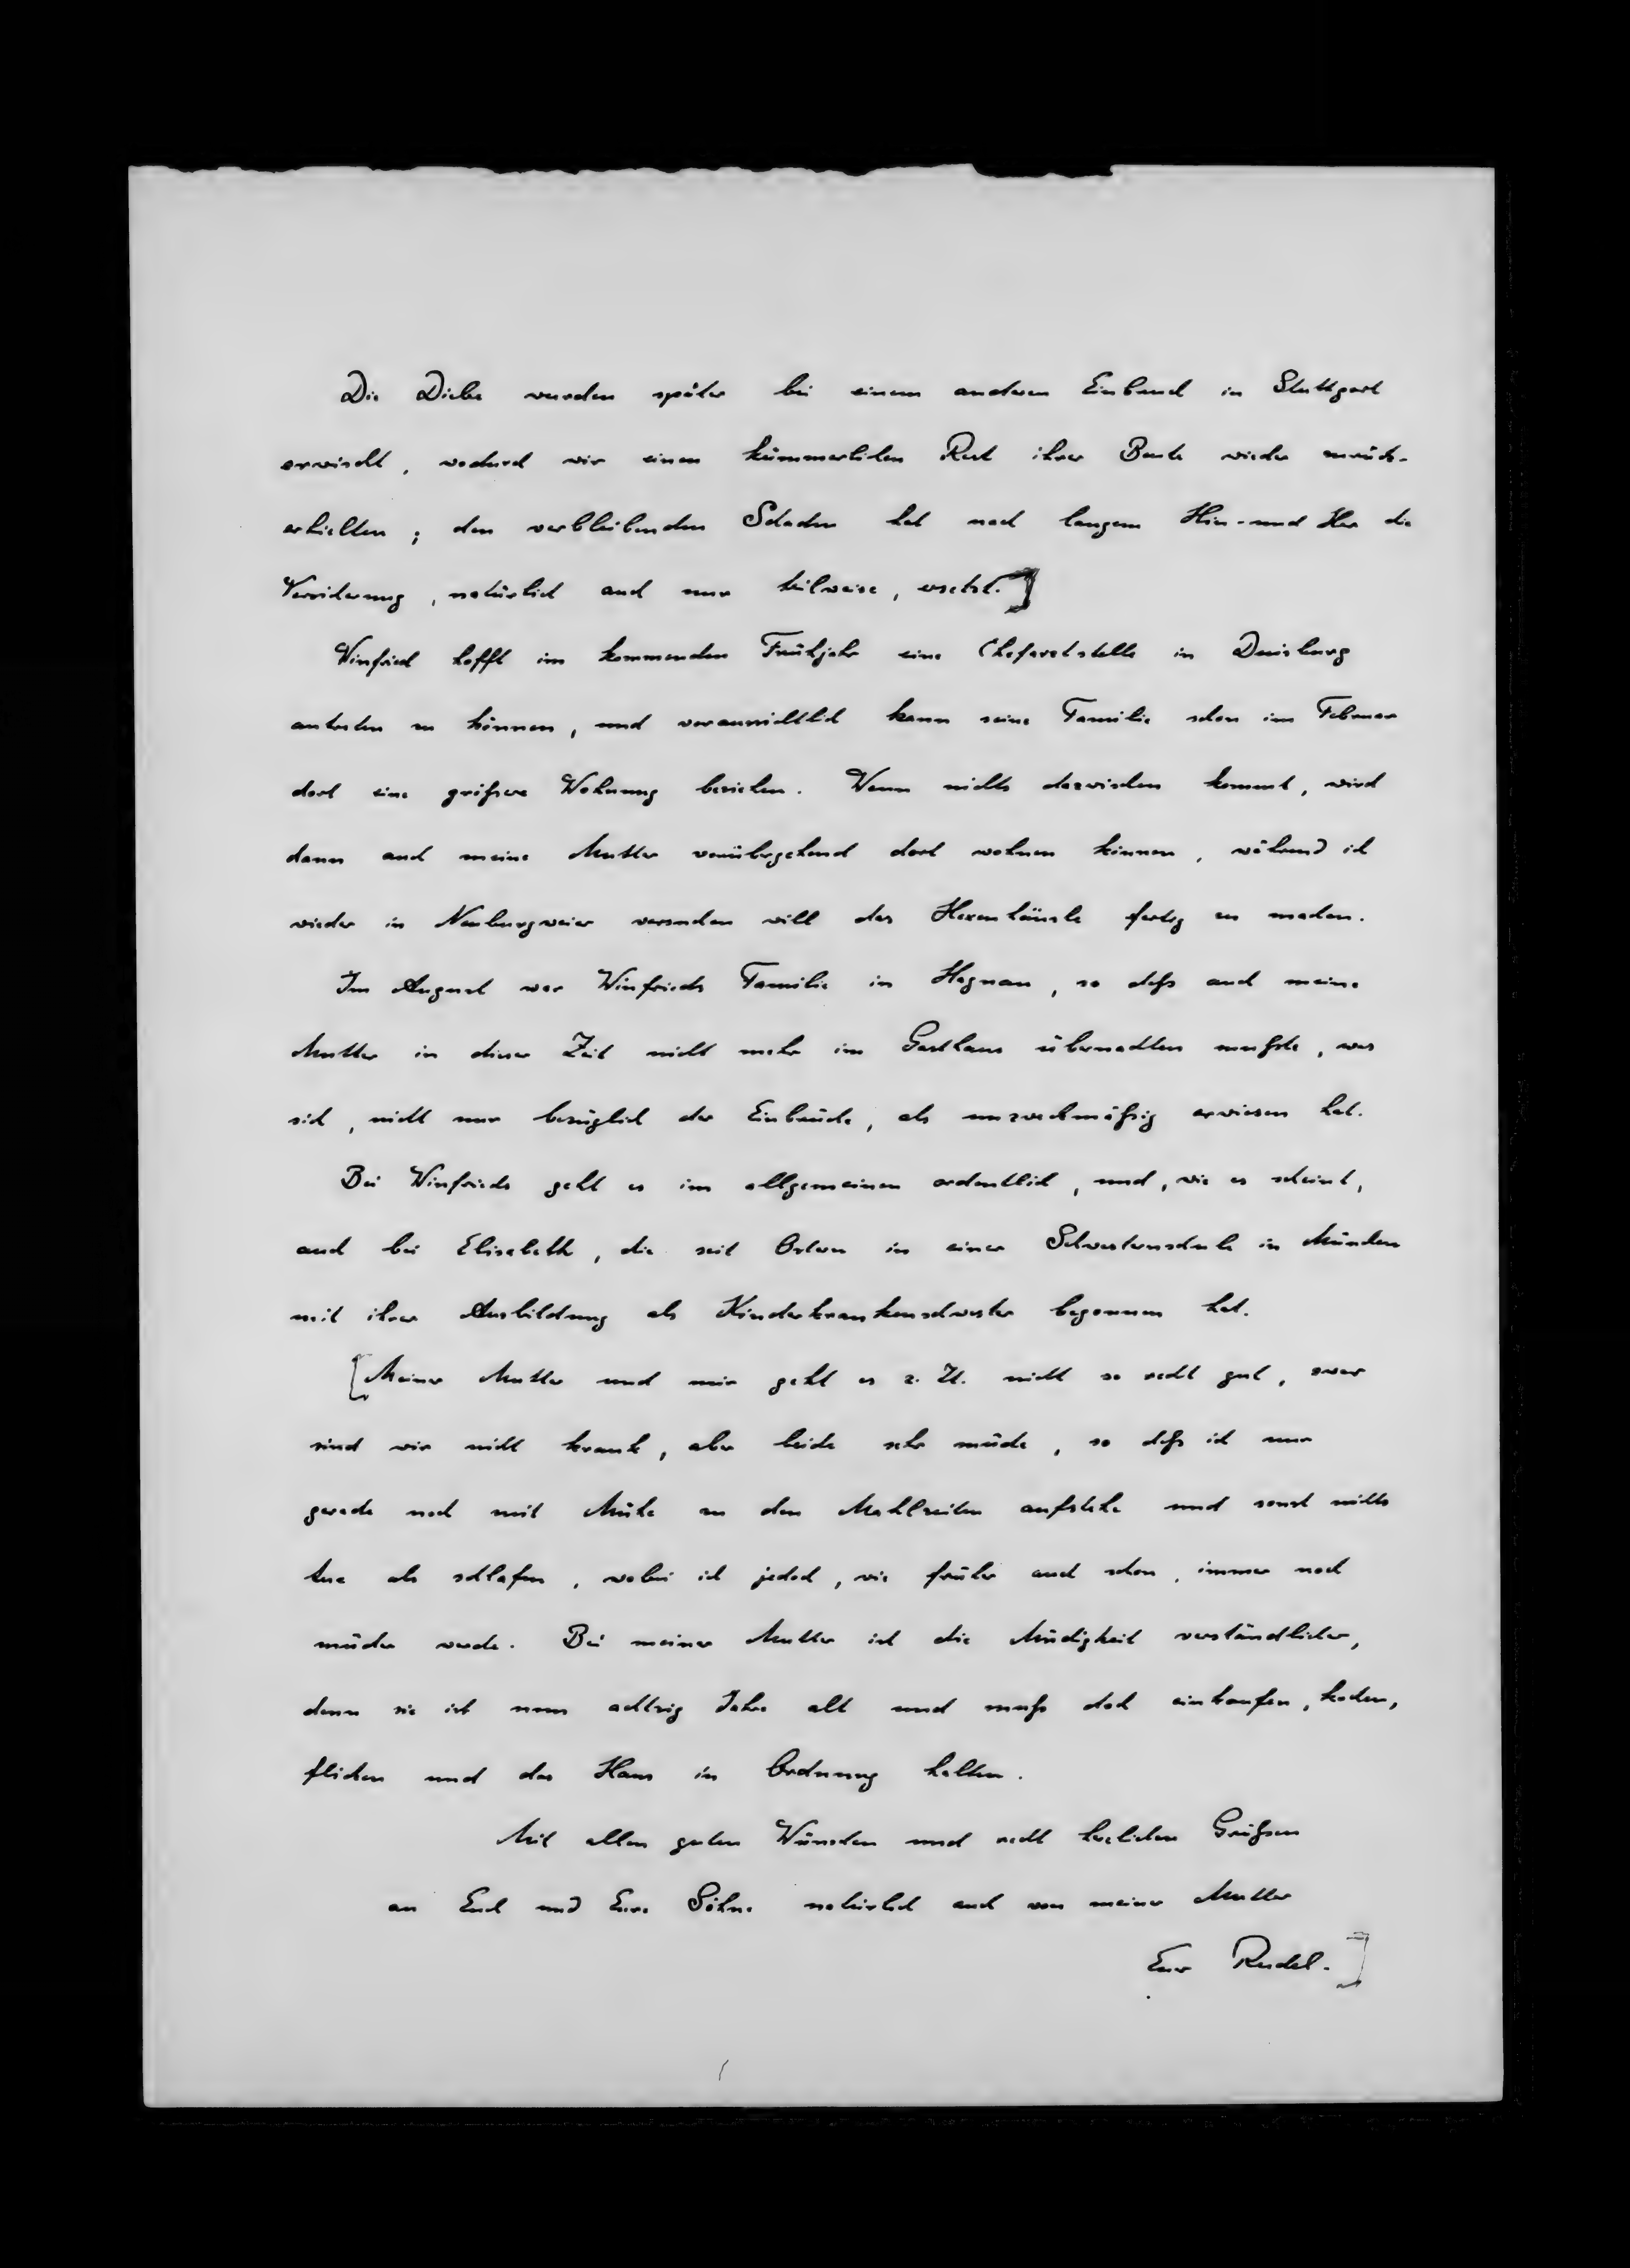 Die Diebe wurden später bei einem anderen Einbruch in Stuttgart
erwischt, wodurch wir einen kümmerlichen Rest ihrer Beute wieder zurück-
erhielten; den verbleibenden Schaden hat nach langem Hin- und Her die
Versicherung, natürlich auch nur teilweise, ersetzt.]
Winfried hofft im kommenden Frühjahr eine Chefarztstelle in Duisburg
antreten zu können, und voraussichtlich kann seine Familie schon im Februar
dort eine größere Wohnung beziehen. Wenn nichts dazwischen kommt, wird
dann auch meine Mutter vorübergehend dort wohnen können, während ich
wieder in Neuburgweier versuchen will das Hexenhäusle fertig zu machen.
Im August war Winfrieds Familie in Hagnau, so daß auch meine
Mutter in dieser Zeit nicht mehr im Gasthaus übernachten mußte, was
sich, nicht nur bezüglich der Einbrüche, als unzweckmäßig erwiesen hat.
Bei Winfrieds geht es im allgemeinen ordentlich, und, wie es scheint,
auch bei Elisabeth, die seit Ostern in einer Schwesternschule in München
mit ihrer Ausbildung als Kinderkrankenschwester begonnen hat.
[Meiner Mutter und mir geht es z. Zt. nicht so recht gut, zwar
sind wir nicht krank, aber beide sehr müde, so daß ich nur
gerade noch mit Mühe zu den Mahlzeiten aufstehe und sonst nichts
tue als schlafen, wobei ich jedoch, wie früher auch schon, immer noch
müder werde. Bei meiner Mutter ist die Müdigkeit verständlicher,
denn sie ist nun achtzig Jahre alt und muß doch einkaufen, kochen,
flicken und das Haus in Ordnung halten.
Mit allen guten Wünschen und recht herzlichen Grüßen
an Euch und Eure Söhne natürlich auch von meiner Mutter
Euer Rudel.]